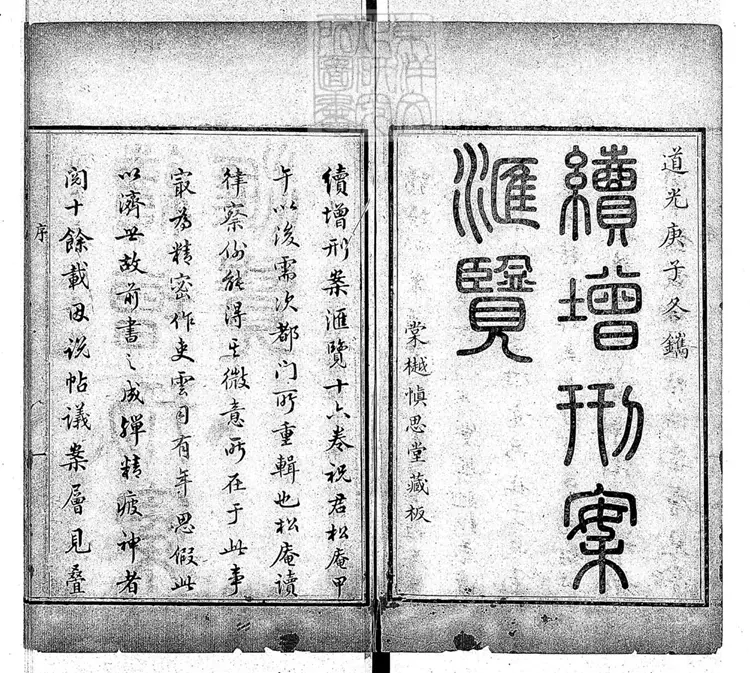 道光庚子冬鐫
續增刑案
滙覽
棠樾慎思堂藏板
續增刑案滙覽十六卷祝君松庵甲
午以後需次都门所重輯也松庵读
律察例能得其微意所在于此事
寂为精密作吏雲司有年思假此
以濟世故前書之成殫精疲神者
閱十餘载毋说帖議案層見叠
序
一